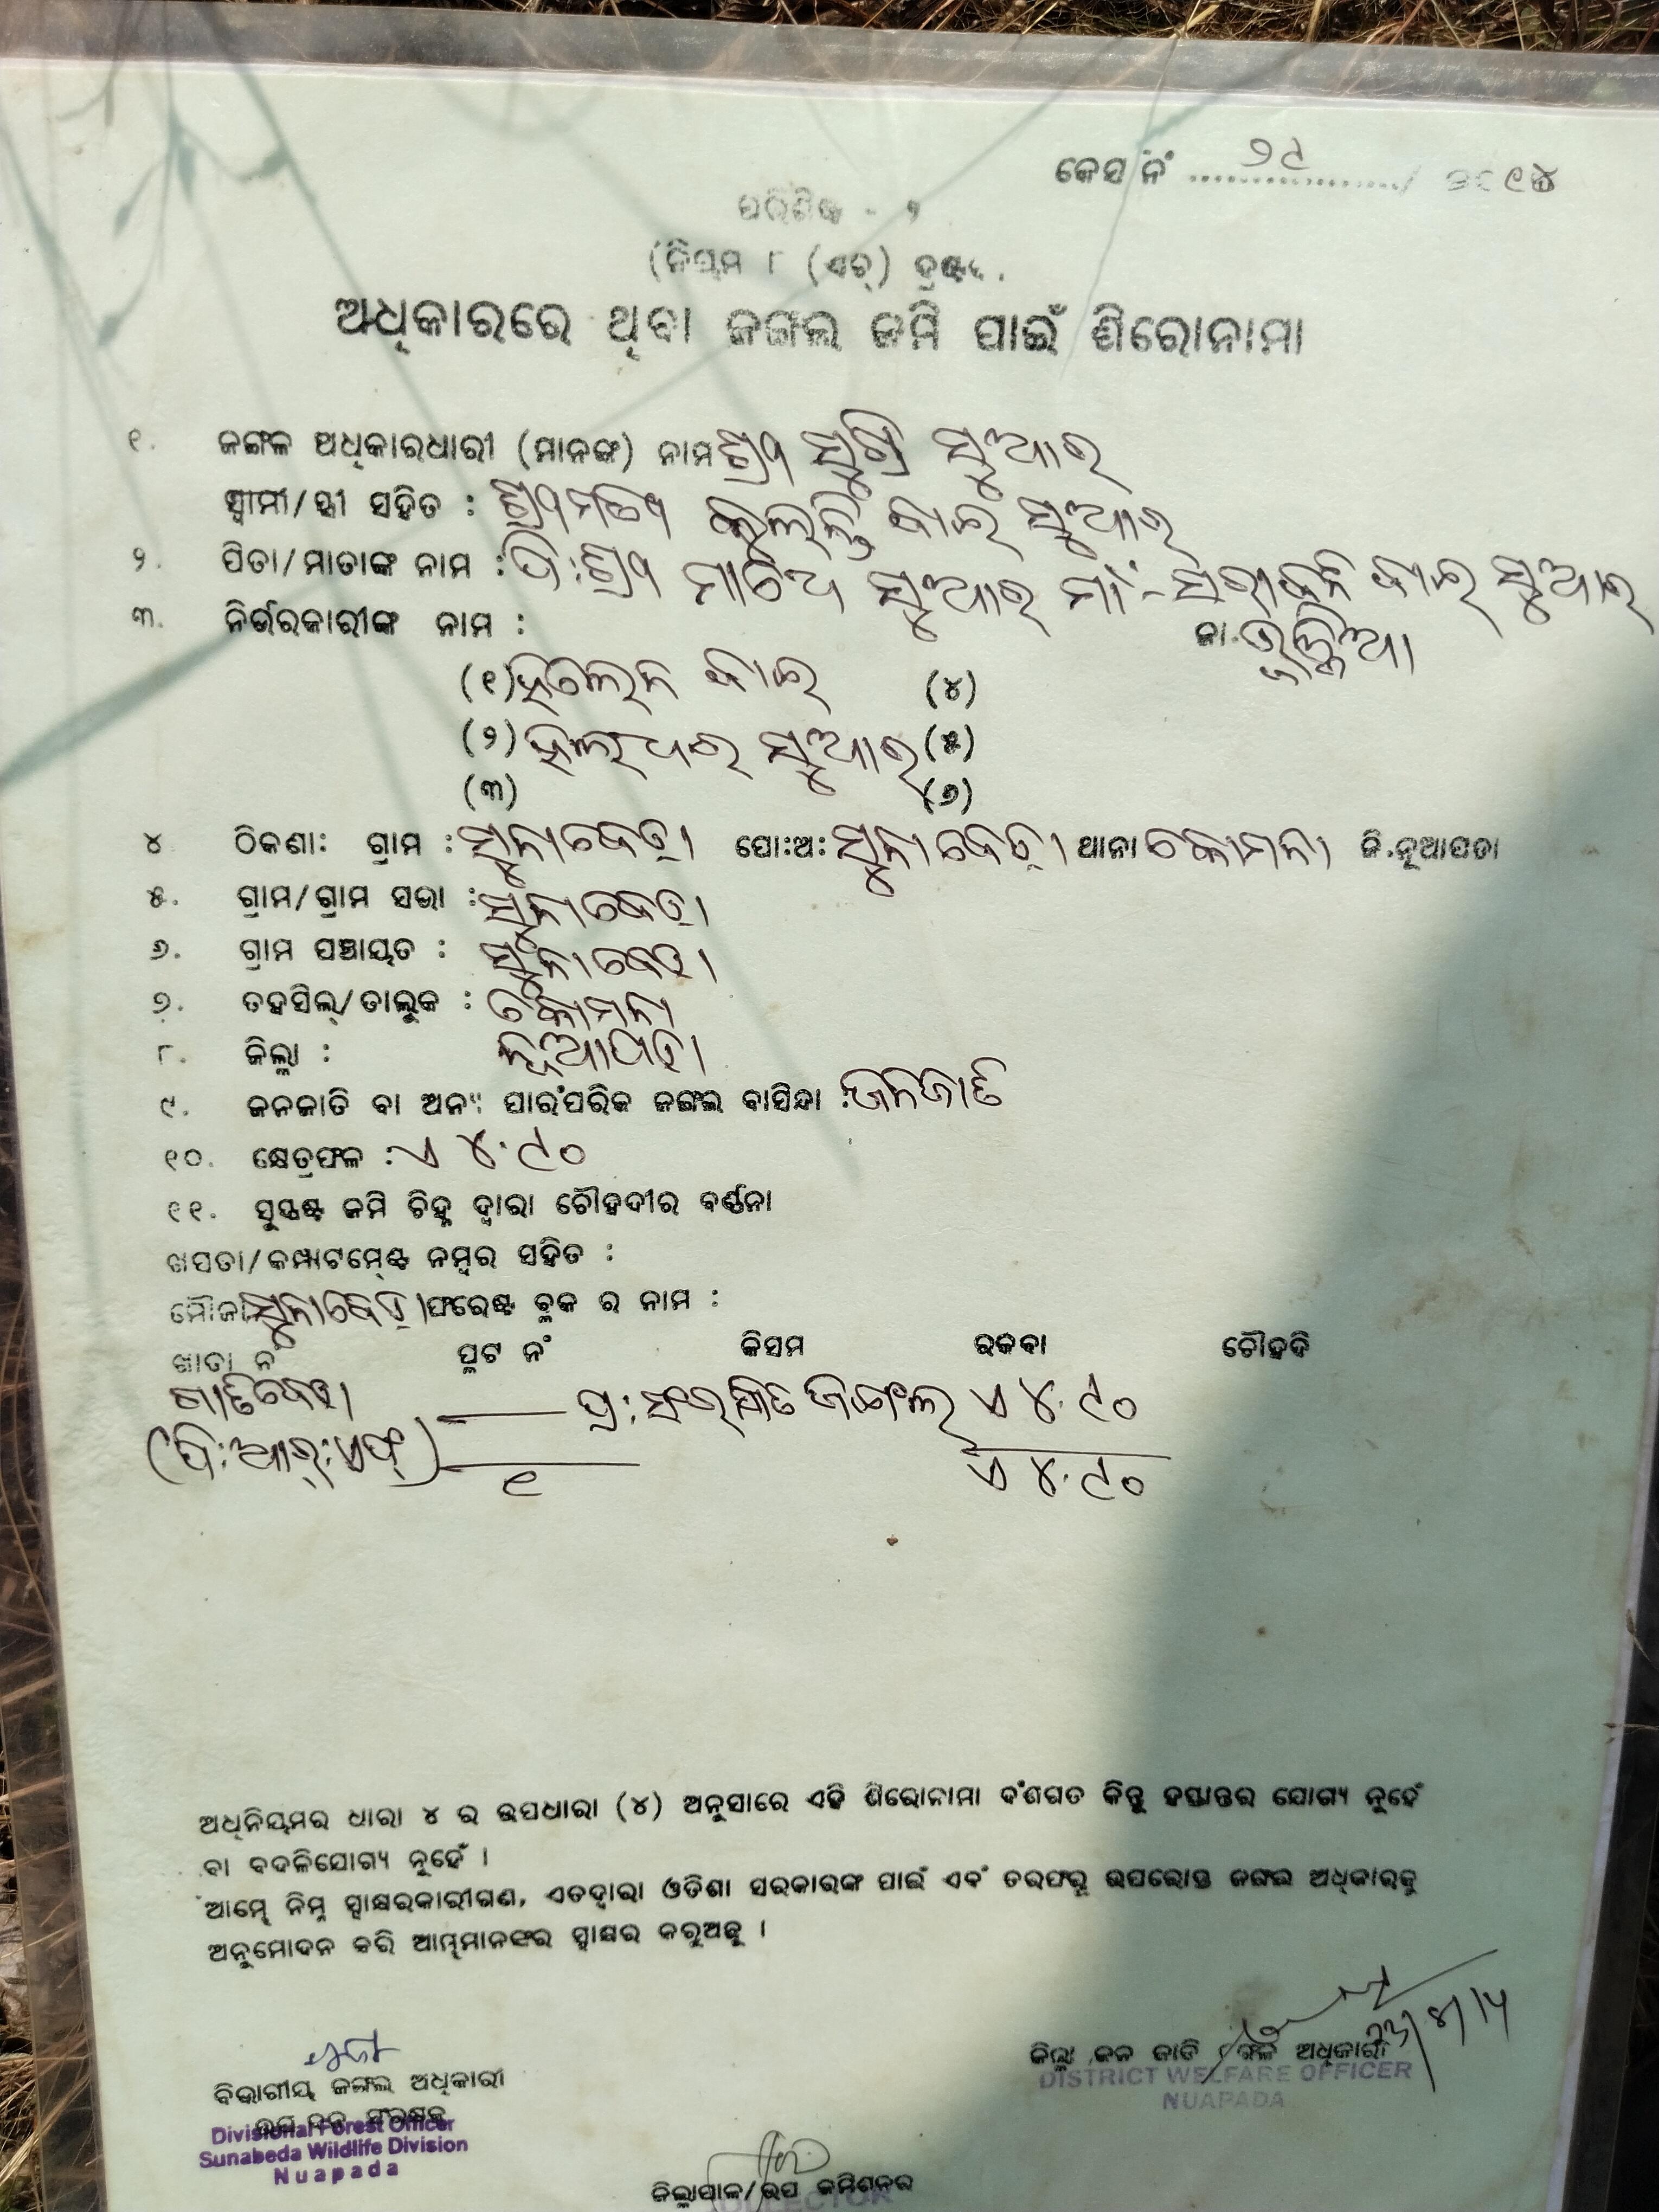 କେସ ନଂ ..................../ ୨୯ ୨୦୧୪
ପରିଶିଷ୍ଟ - ୨
(ନିୟମ ୮ (ଏଚ୍) ଦ୍ରଷ୍ଟବ୍ୟ)
ଅଧିକାରରେ ଥିବା ଜଙ୍ଗଲ ଜମି ପାଇଁ ଶିରୋନାମା
୧. ଜଙ୍ଗଳ ଅଧିକାରଧାରୀ (ମାନଙ୍କ) ନାମ ଶ୍ରୀ ସୁଗ୍ରି ସୁଁଆର
ସ୍ୱାମୀ/ସ୍ତ୍ରୀ ସହିତ : ଶ୍ରୀମତୀ ବାଇ ସୁଁଆର
୨. ପିତା/ମାତାଙ୍କ ନାମ : ପି:ଶ୍ରୀ ସୁଁଆର ମାଁ:- ବାଇ ସୁଁଆର
ଜା. ଭୁଞ୍ଜିଆ
୩. ନିର୍ଭରକାରୀଙ୍କ ନାମ :
(୧) ବାଇ (୪)
(୨) ସୁଁଆର (୫)
(୩) (୬)
୪ ଠିକଣା: ଗ୍ରାମ : ସୁନାବେଡ଼ା ପୋ:ଅ: ସୁନାବେଡ଼ା ଥାନା କୋମନା ଜି.ନୂଆପଡା
୫. ଗ୍ରାମ/ଗ୍ରାମ ସଭା : ସୁନାବେଡ଼ା
୬. ଗ୍ରାମ ପଞ୍ଚାୟତ : ସୁନାବେଡ଼ା
୭. ତହସିଲ୍/ତାଲୁକ : କୋମନା
୮. ଜିଲ୍ଲା : ନୂଆପଡ଼ା
୯. ଜନଜାତି ବା ଅନ୍ୟ ପାରଂପରିକ ଜଙ୍ଗଲ ବାସିନ୍ଦା : ଜନଜାତି
୧୦. କ୍ଷେତ୍ରଫଳ : ଏ ୪.୯୦
୧୧. ସୁସ୍ପଷ୍ଟ ଜମି ଚିହ୍ନ ଦ୍ୱାରା ଚୌହଦୀର ବର୍ଣ୍ଣନା
ଖସଡା/କମ୍ପାଟମେଣ୍ଟ ନମ୍ବର ସହିତ :
ମୌଜା ସୁନାବେଡ଼ା ଫରେଷ୍ଟ ବ୍ଳକ ର ନାମ :
ଖାତା ନଂ ପ୍ଳଟ ନଂ କିସମ ରକବା ଚୌହଦି
ପ୍ର:ସଂରକ୍ଷିତ ଜଙ୍ଗଲ ଏ ୪.୯୦
(ପି:ଆର୍:ଏଫ୍) ୧ ଏ ୪.୯୦
ଅଧିନିୟମର ଧାରା ୪ ର ଉପଧାରା (୪) ଅନୁସାରେ ଏହି ଶିରୋନାମା ବଂଶଗତ କିନ୍ତୁ ହସ୍ତାନ୍ତର ଯୋଗ୍ୟ ନୁହେଁ
ବା ବଦଳିଯୋଗ୍ୟ ନୁହେଁ ।
ଆମ୍ଭେ ନିମ୍ନ ସ୍ୱାକ୍ଷରକାରୀଗଣ, ଏତଦ୍ୱାରା ଓଡିଶା ସରକାରଙ୍କ ପାଇଁ ଏବଂ ତରଫରୁ ଉପରୋକ୍ତ ଜଙ୍ଗଲ ଅଧିକାରକୁ
ଅନୁମୋଦନ କରି ଆମ୍ଭମାନଙ୍କର ସ୍ୱାକ୍ଷର କରୁଅଛୁ ।
ଜିଲ୍ଲା ଜନ ଜାତି ମଙ୍ଗଳ ଅଧିକାରୀ
DISTRICT WELFARE OFFICER
NUAPADA
ବିଭାଗୀୟ ଜଙ୍ଗଲ ଅଧିକାରୀ
ଉପ ବନ ସଂରକ୍ଷକ
Divisional Forest Officer
Sunabeda Wildlife Division
Nuapada
ଜିଲ୍ଲାପାଳ/ଉପ କମିଶନର